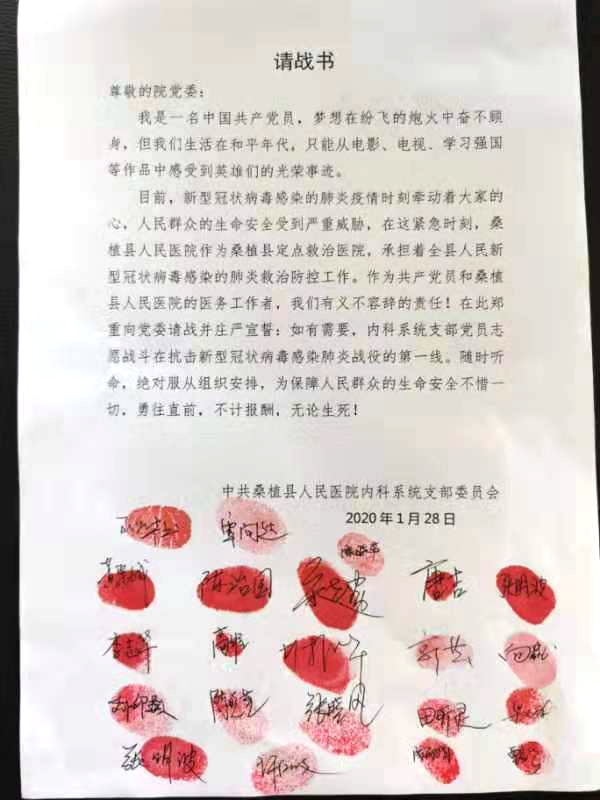 请战书
尊敬的院党委：
我是一名中国共产党员，梦想在纷飞的炮火中奋不顾
身，但我们生活在和平年代，只能从电影、电视、学习强国
等作品中感受到英雄们的光荣事迹。
目前，新型冠状病毒感染的肺炎疫情时刻牵动着大家的
心，人民群众的生命安全受到严重威胁，在这紧急时刻，桑
植县人民医院作为桑植县定点救治医院，承担着全县人民新
型冠状病毒感染的肺炎救治防控工作。作为共产党员和桑植
县人民医院的医务工作者，我们有义不容辞的责任！在此郑
重向党委请战并庄严宣誓：如有需要，内科系统支部党员志
愿战斗在抗击新型冠状病毒感染肺炎战役的第一线。随时听
命，绝对服从组织安排，为保障人民群众的生命安全不惜一
切，勇往直前，不计报酬，无论生死！
中共桑植县人民医院内科系统支部委员会
2020年1月28日
陈治国 唐吉
张晓风
张明波